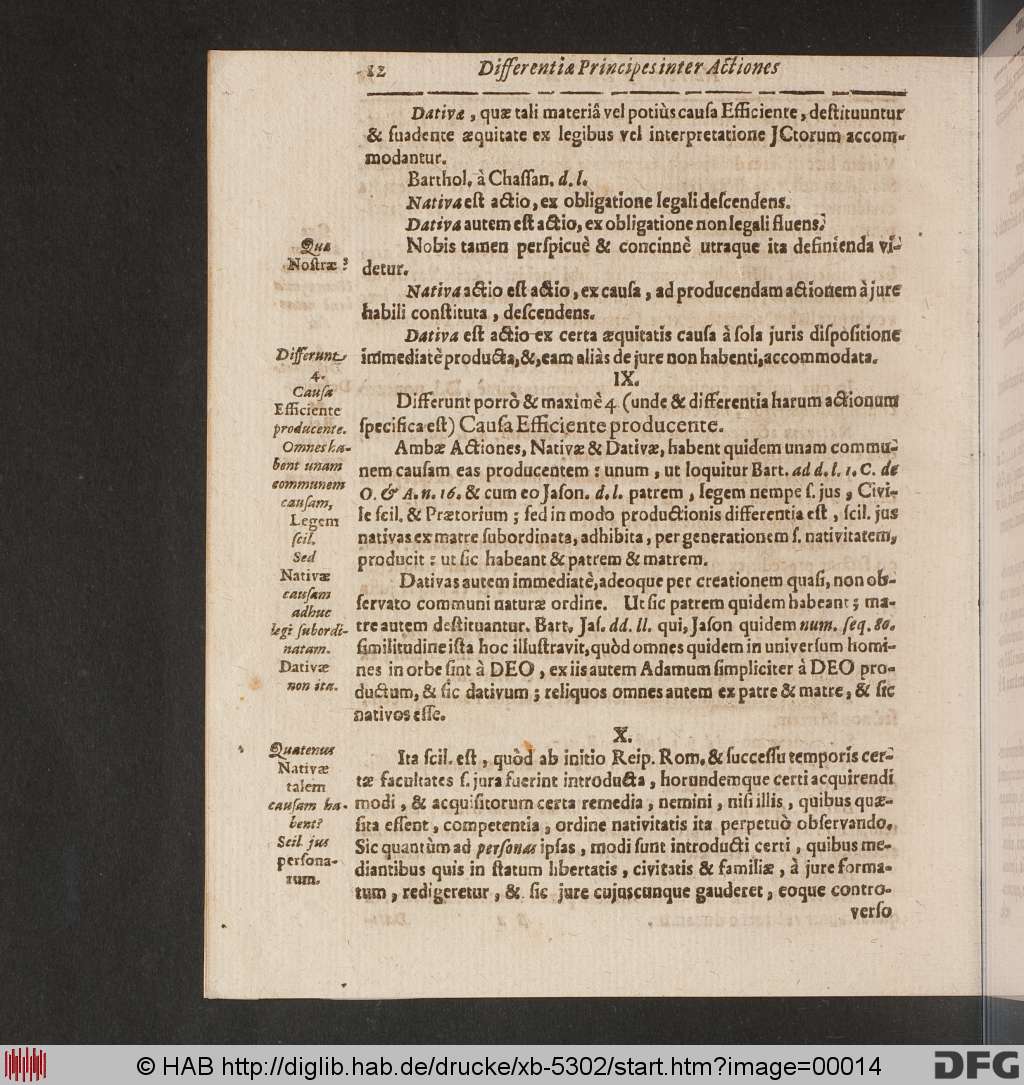 12 Differentiæ Principes inter Actiones
Dativæ, quæ tali materiâ vel potiùs causa Efficiente, destituuntur
& suadente æquitate ex legibus vel interpretatione JCtorum accom-
modantur.
Barthol. à Chassan. d. l.
Nativa est actio, ex obligatione legali descendens.
Dativa autem est actio, ex obligatione non legali fluens.
Quæ
Nostræ?
Nobis tamen perspicuè & concinnè utraque ita definienda vi-
detur.
Nativa actio est actio, ex causa, ad producendam actionem à jure
habili constituta, descendens.
Dativa est actio ex certa æquitatis causa à sola juris dispositione
immediatè producta, &, eam aliàs de jure non habenti, accommodata.
IX.
Differunt
4.
Causa
Efficiente
producente.
Omnes ha-
bent unam
communem
causam,
Legem
scil.
Sed
Nativæ
causam
adhuc
legi subordi-
natam.
Dativæ
non ita.
Differunt porrò & maximè 4 (unde & differentia harum actionum
specifica est) Causa Efficiente producente.
Ambæ Actiones, Nativæ & Dativæ, habent quidem unam commu-
nem causam eas producentem: unum, ut loquitur Bart. ad d. l. 1. C. de
O. & A. n. 16. & cum eo Jason. d. l. patrem, legem nempe s. jus, Civi-
le scil. & Prætorium; sed in modo productionis differentia est, scil. jus
nativas ex matre subordinata, adhibita, per generationem s. nativitatem,
producit: ut sic habeant & patrem & matrem.
Dativas autem immediatè, adeoque per creationem quasi, non ob-
servato communi naturæ ordine. Ut sic patrem quidem habeant; ma-
tre autem destituantur. Bart. Jas. dd. ll. qui, Jason quidem num. seq. 80.
similitudine ista hoc illustravit, quòd omnes quidem in universum homi-
nes in orbe sint à DEO, ex iis autem Adamum simpliciter à DEO pro-
ductum, & sic dativum; reliquos omnes autem ex patre & matre, & sic
nativos esse.
X.
Quatenus
Nativæ
talem
causam ha-
bent?
Scil. jus
persona-
rum.
Ita scil. est, quòd ab initio Reip. Rom. & successu temporis cer-
tæ facultates s. jura fuerint introducta, horundemque certi acquirendi
modi, & acquisitorum certa remedia, nemini, nisi illis, quibus quæ-
sita essent, competentia, ordine nativitatis ita perpetuò observando.
Sic quantùm ad personas ipsas, modi sunt introducti certi, quibus me-
diantibus quis in statum libertatis, civitatis & familiæ, à jure forma-
tum, redigeretur, & sic jure cujuscunque gauderet, eoque contro-
verso
© HAB http://diglib.hab.de/drucke/xb-5302/start.htm?image=00014
DFG